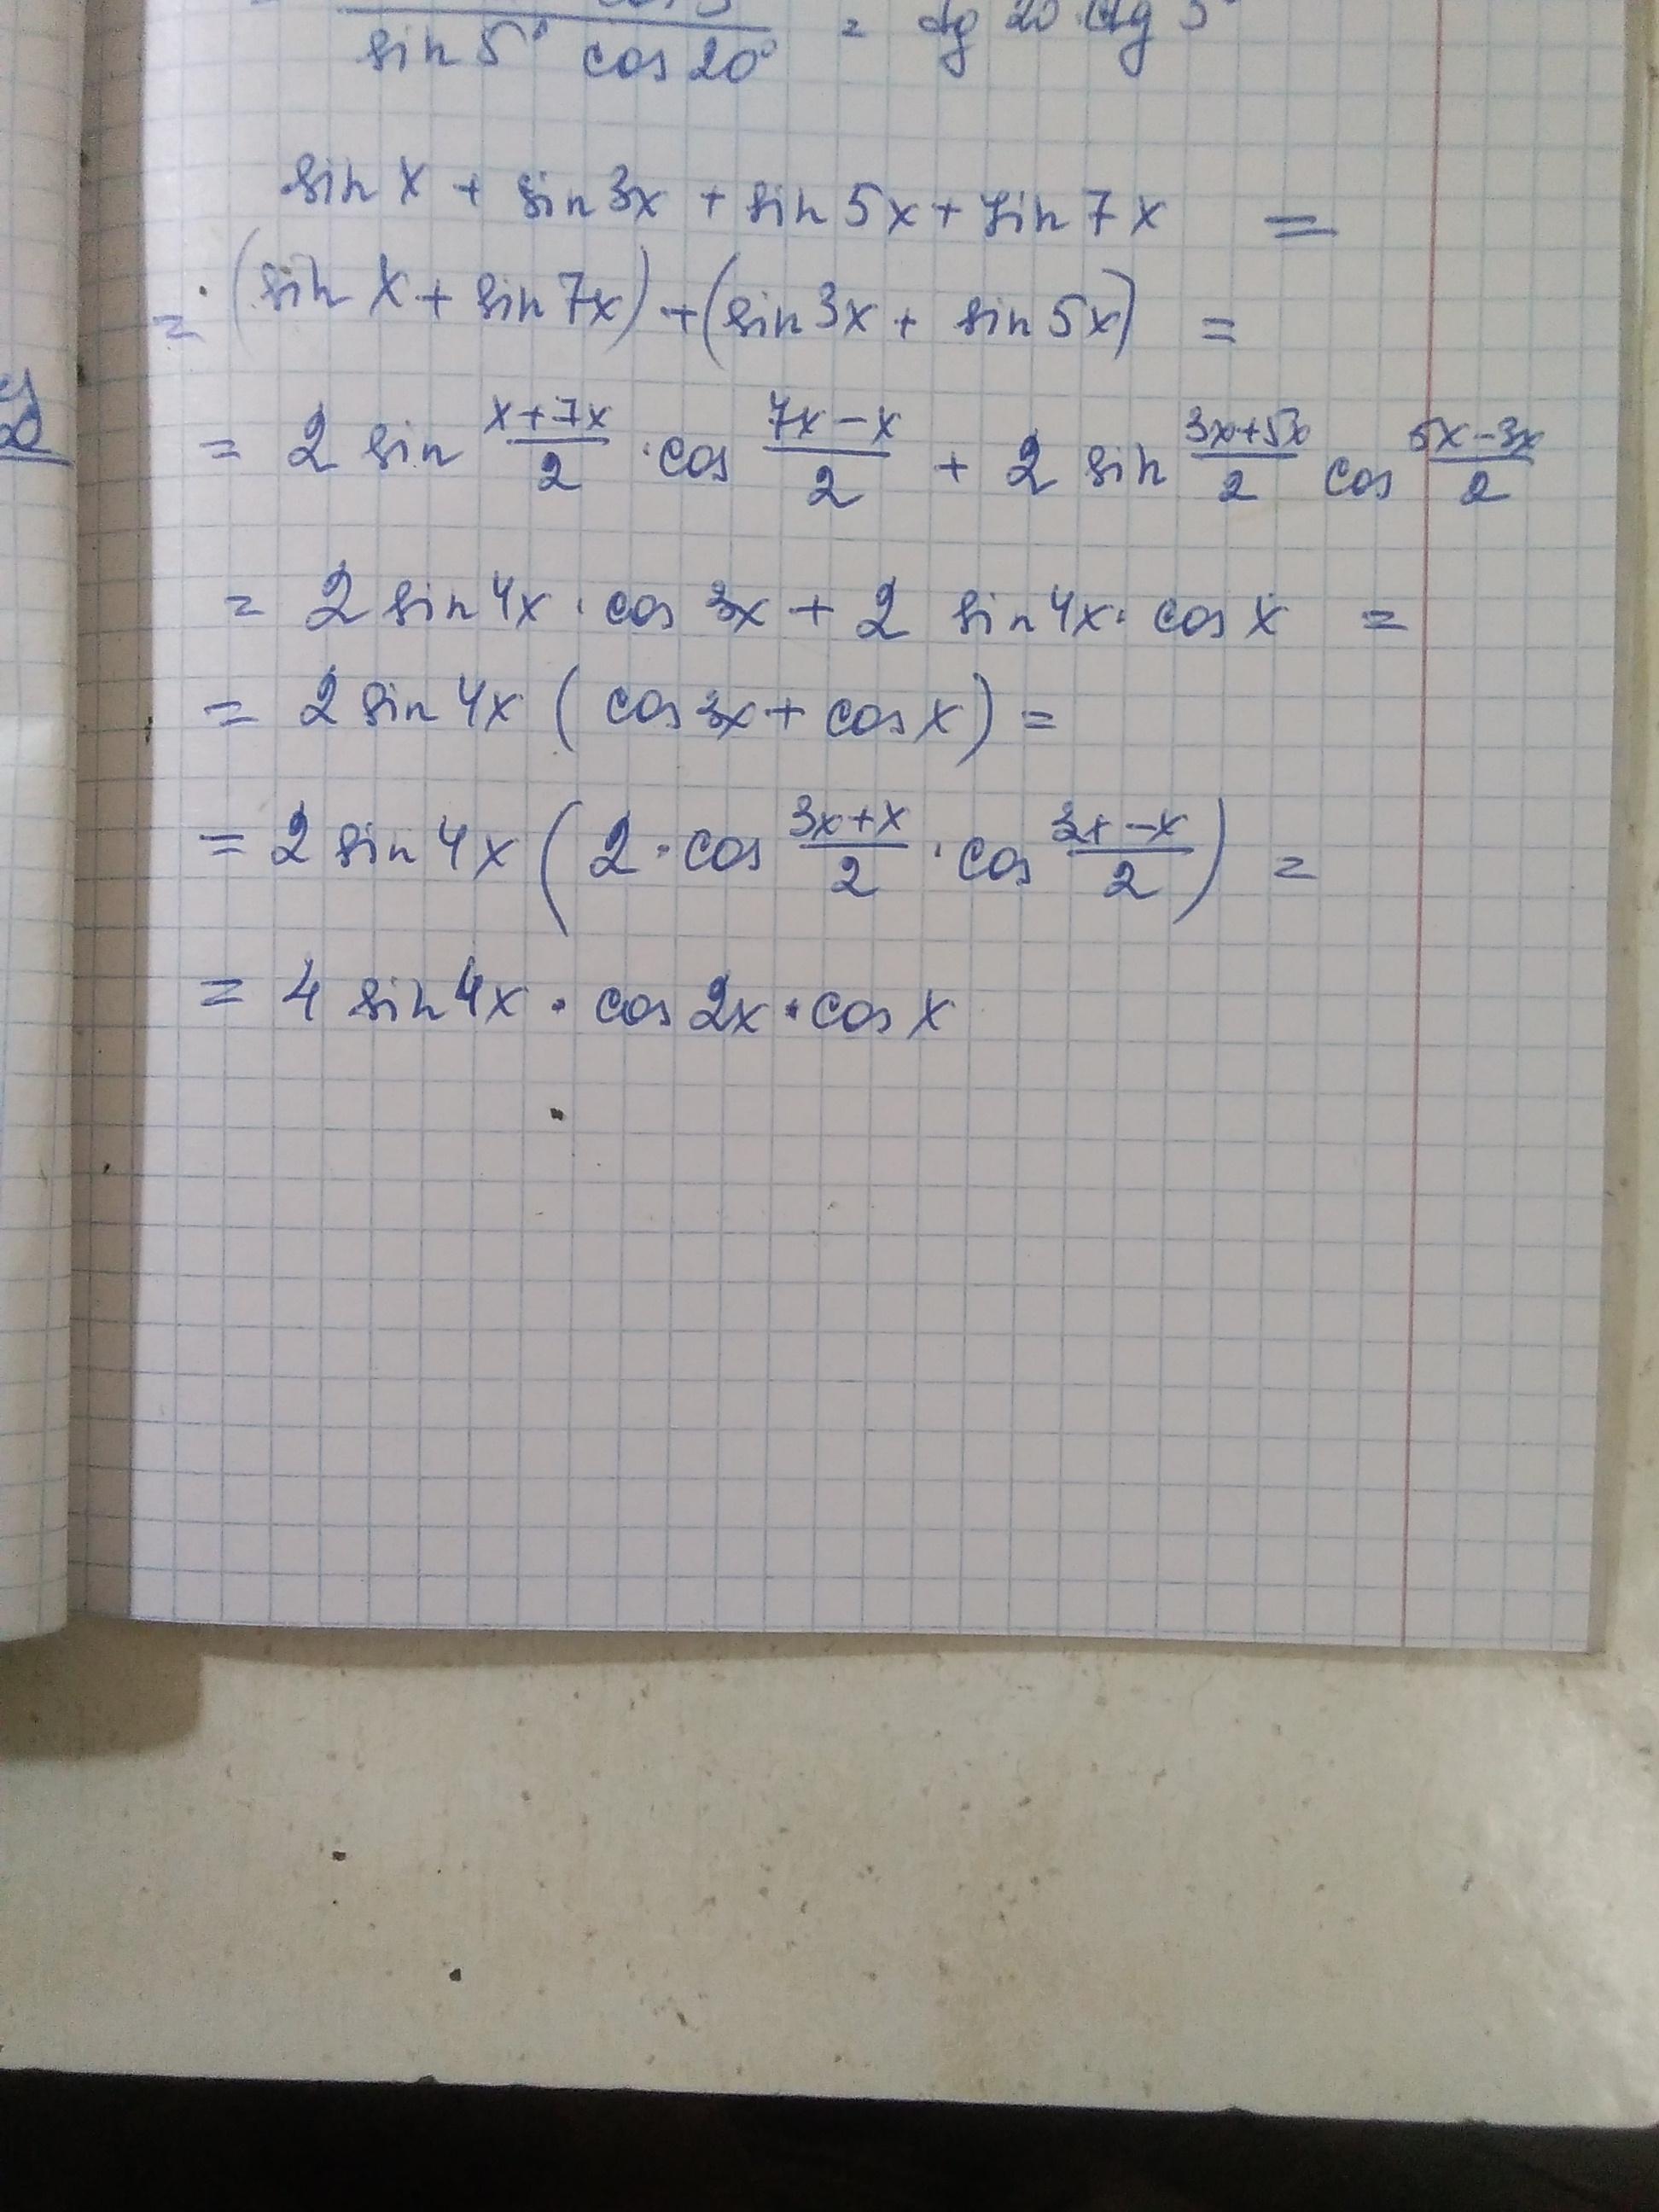 sin 5° cos 20° = tg 20 ctg 5°
sin x + sin 3x + sin 5x + sin 7x =
= (sin x + sin 7x) + (sin 3x + sin 5x) =
= 2 sin (x+7x)/2 · cos (7x-x)/2 + 2 sin (3x+5x)/2 cos (5x-3x)/2
= 2 sin 4x · cos 3x + 2 sin 4x · cos x =
= 2 sin 4x ( cos 3x + cos x ) =
= 2 sin 4x ( 2 · cos (3x+x)/2 · cos (3x-x)/2 ) =
= 4 sin 4x · cos 2x · cos x